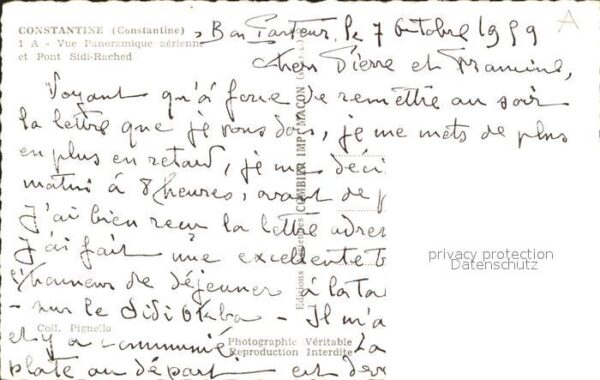 CONSTANTINE (Constantine)
1 A - Vue Panoramique aérienne
et Pont Sidi-Rached
, le 7 Octobre 1959
A
Chers Pierre et Francine,
Voyant qu'à force de remettre au soir
la lettre que je vous dois, je me mets de plus
en plus en retard, je me déci
matin à 8 heures, avant de p
J'ai bien reçu la lettre adres
J'ai fait une excellente t
l'honneur de déjeuner à la Ta
- sur le Sidi Okba - Il m'a
et y a communié. La
plate au départ est dev
Coll. Pignella
Photographic Véritable
Reproduction Interdite
Editions
COMBIER IMP. MACON
privacy protection
Datenschutz